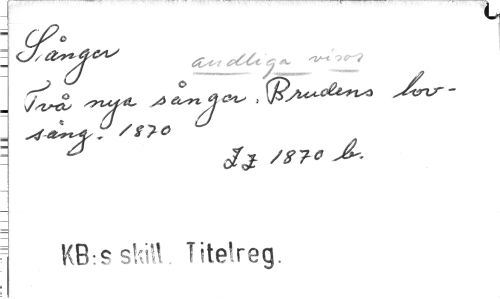 Sånger
andliga visor
Två nya sånger. Brudens lov-
sång. 1870
1870 b.
KB:s skill. Titelreg.